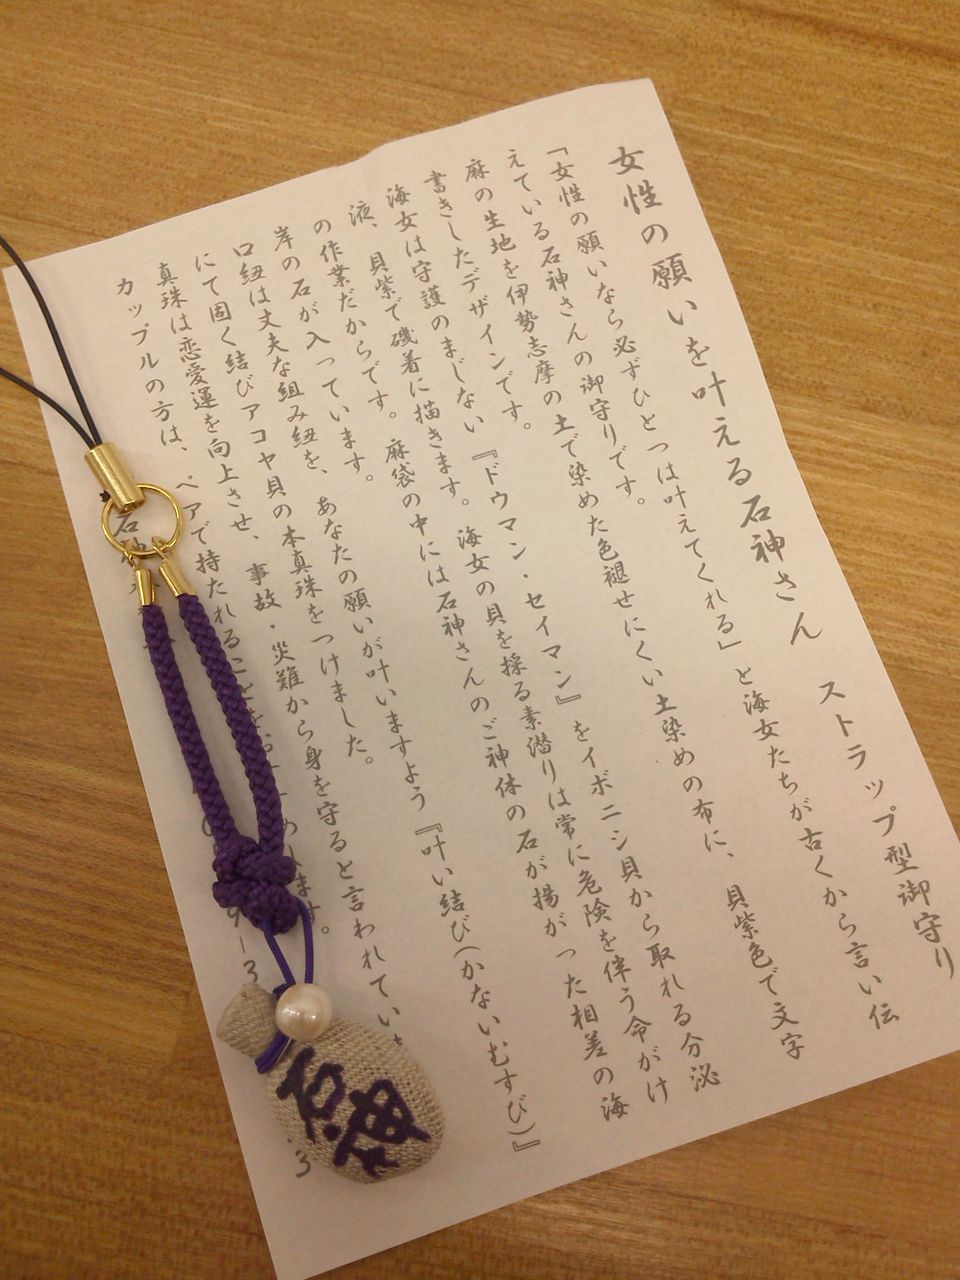 女性の願いを叶える石神さん　ストラップ型御守り
「女性の願いなら必ずひとつは叶えてくれる」と海女たちが古くから言い伝
えている石神さんの御守りです。
麻の生地を伊勢志摩の土で染めた色褪せにくい土染めの布に、貝紫色で文字
書きしたデザインです。
海女は守護のまじない『ドウマン・セイマン』をイボニシ貝から取れる分泌
液、貝紫で磯着に描きます。海女の貝を採る素潜りは常に危険を伴う命がけ
の作業だからです。麻袋の中には石神さんのご神体の石が揚がった相差の海
岸の石が入っています。
口紐は丈夫な組み紐を、あなたの願いが叶いますよう『叶い結び(かないむすび)』
にて固く結びアコヤ貝の本真珠をつけました。
真珠は恋愛運を向上させ、事故・災難から身を守ると言われてい
カップルの方は、ペアで持たれることをお
ます。
石神
石神